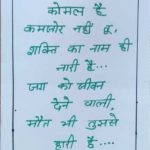 कोमल है
कमजोर नहीं तू,
शक्ति का नाम ही
नारी है...
जग को जीवन
देने वाली,
मौत भी तुझसे
हारी है....